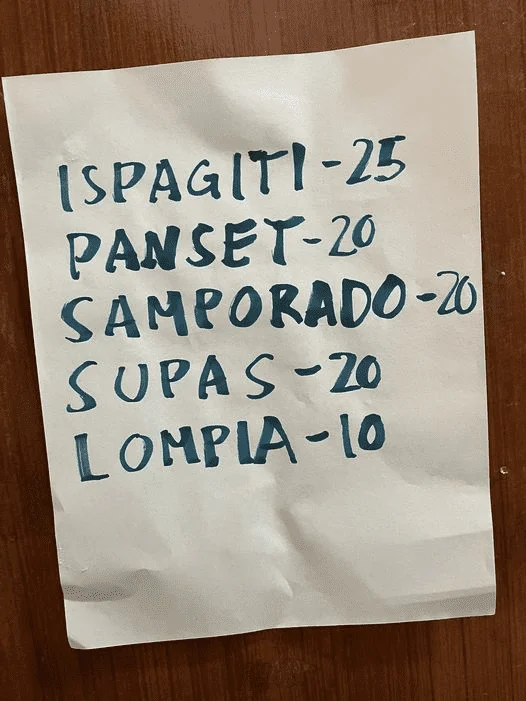 ISPAGITI-25
PANSET-20
SAMPORADO-20
SUPAS-20
LOMPIA-10